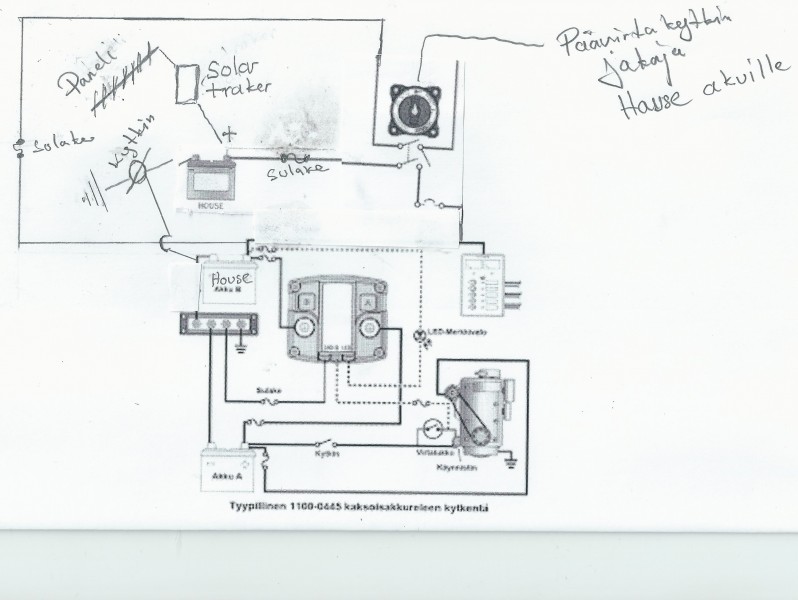 Paneli
Solar
traker
Päävirta kytkin
jakaja
House akuille
Sulake
Kytkin
+
Sulake
HOUSE
House
Akku B
B
A
LED-Merkkivalo
Sulake
Kytkin
Virtalukko
Käynnistin
Akku A
Tyypillinen 1100-0445 kaksoisakkureleen kytkentä